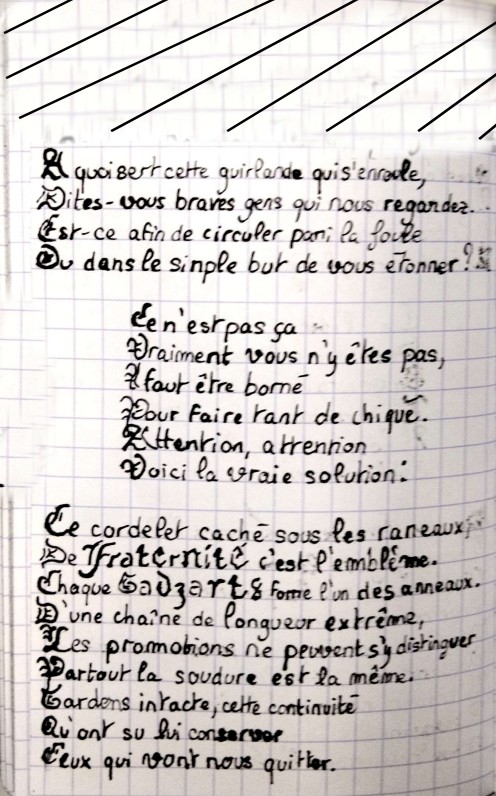 A quoi sert cette guirlande qui s'enroule,
Dites-vous braves gens qui nous regardez.
Est-ce afin de circuler parmi la foule
Ou dans le simple but de vous étonner?
Ce n'est pas ça
Vraiment vous n'y êtes pas,
Il faut être borné
Pour faire tant de chiqué.
Attention, attention
Voici la vraie solution:
Ce cordelet caché sous les rameaux,
De Fraternité c'est l'emblême.
Chaque Gadzarts forme l'un des anneaux.
D'une chaîne de longueur extrême,
Les promotions ne peuvent s'y distinguer
Partout la soudure est la même.
Gardons intacte, cette continuité
Qu'ont su lui conserver
Ceux qui vont nous quitter.